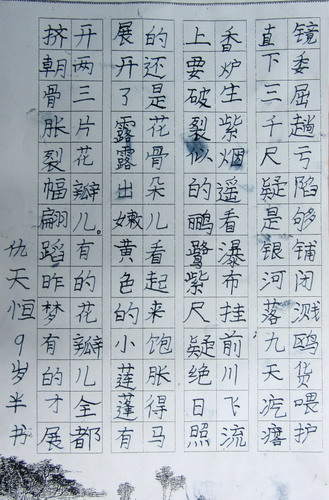 挤朝骨胀裂幅翩蹈昨梦有的才展
开两三片花瓣儿。有的花瓣儿全都
展开了露露出嫩黄色的小莲蓬有
的还是花骨朵儿看起来饱胀得马
上要破裂似的鹏鹭紫尺疑绝日照
香炉生紫烟遥看瀑布挂前川飞流
直下三千尺疑是银河落九天疙瘩
镜委屈趟亏陷够铺闭溅鸥货喂护
仇天恒9岁半书